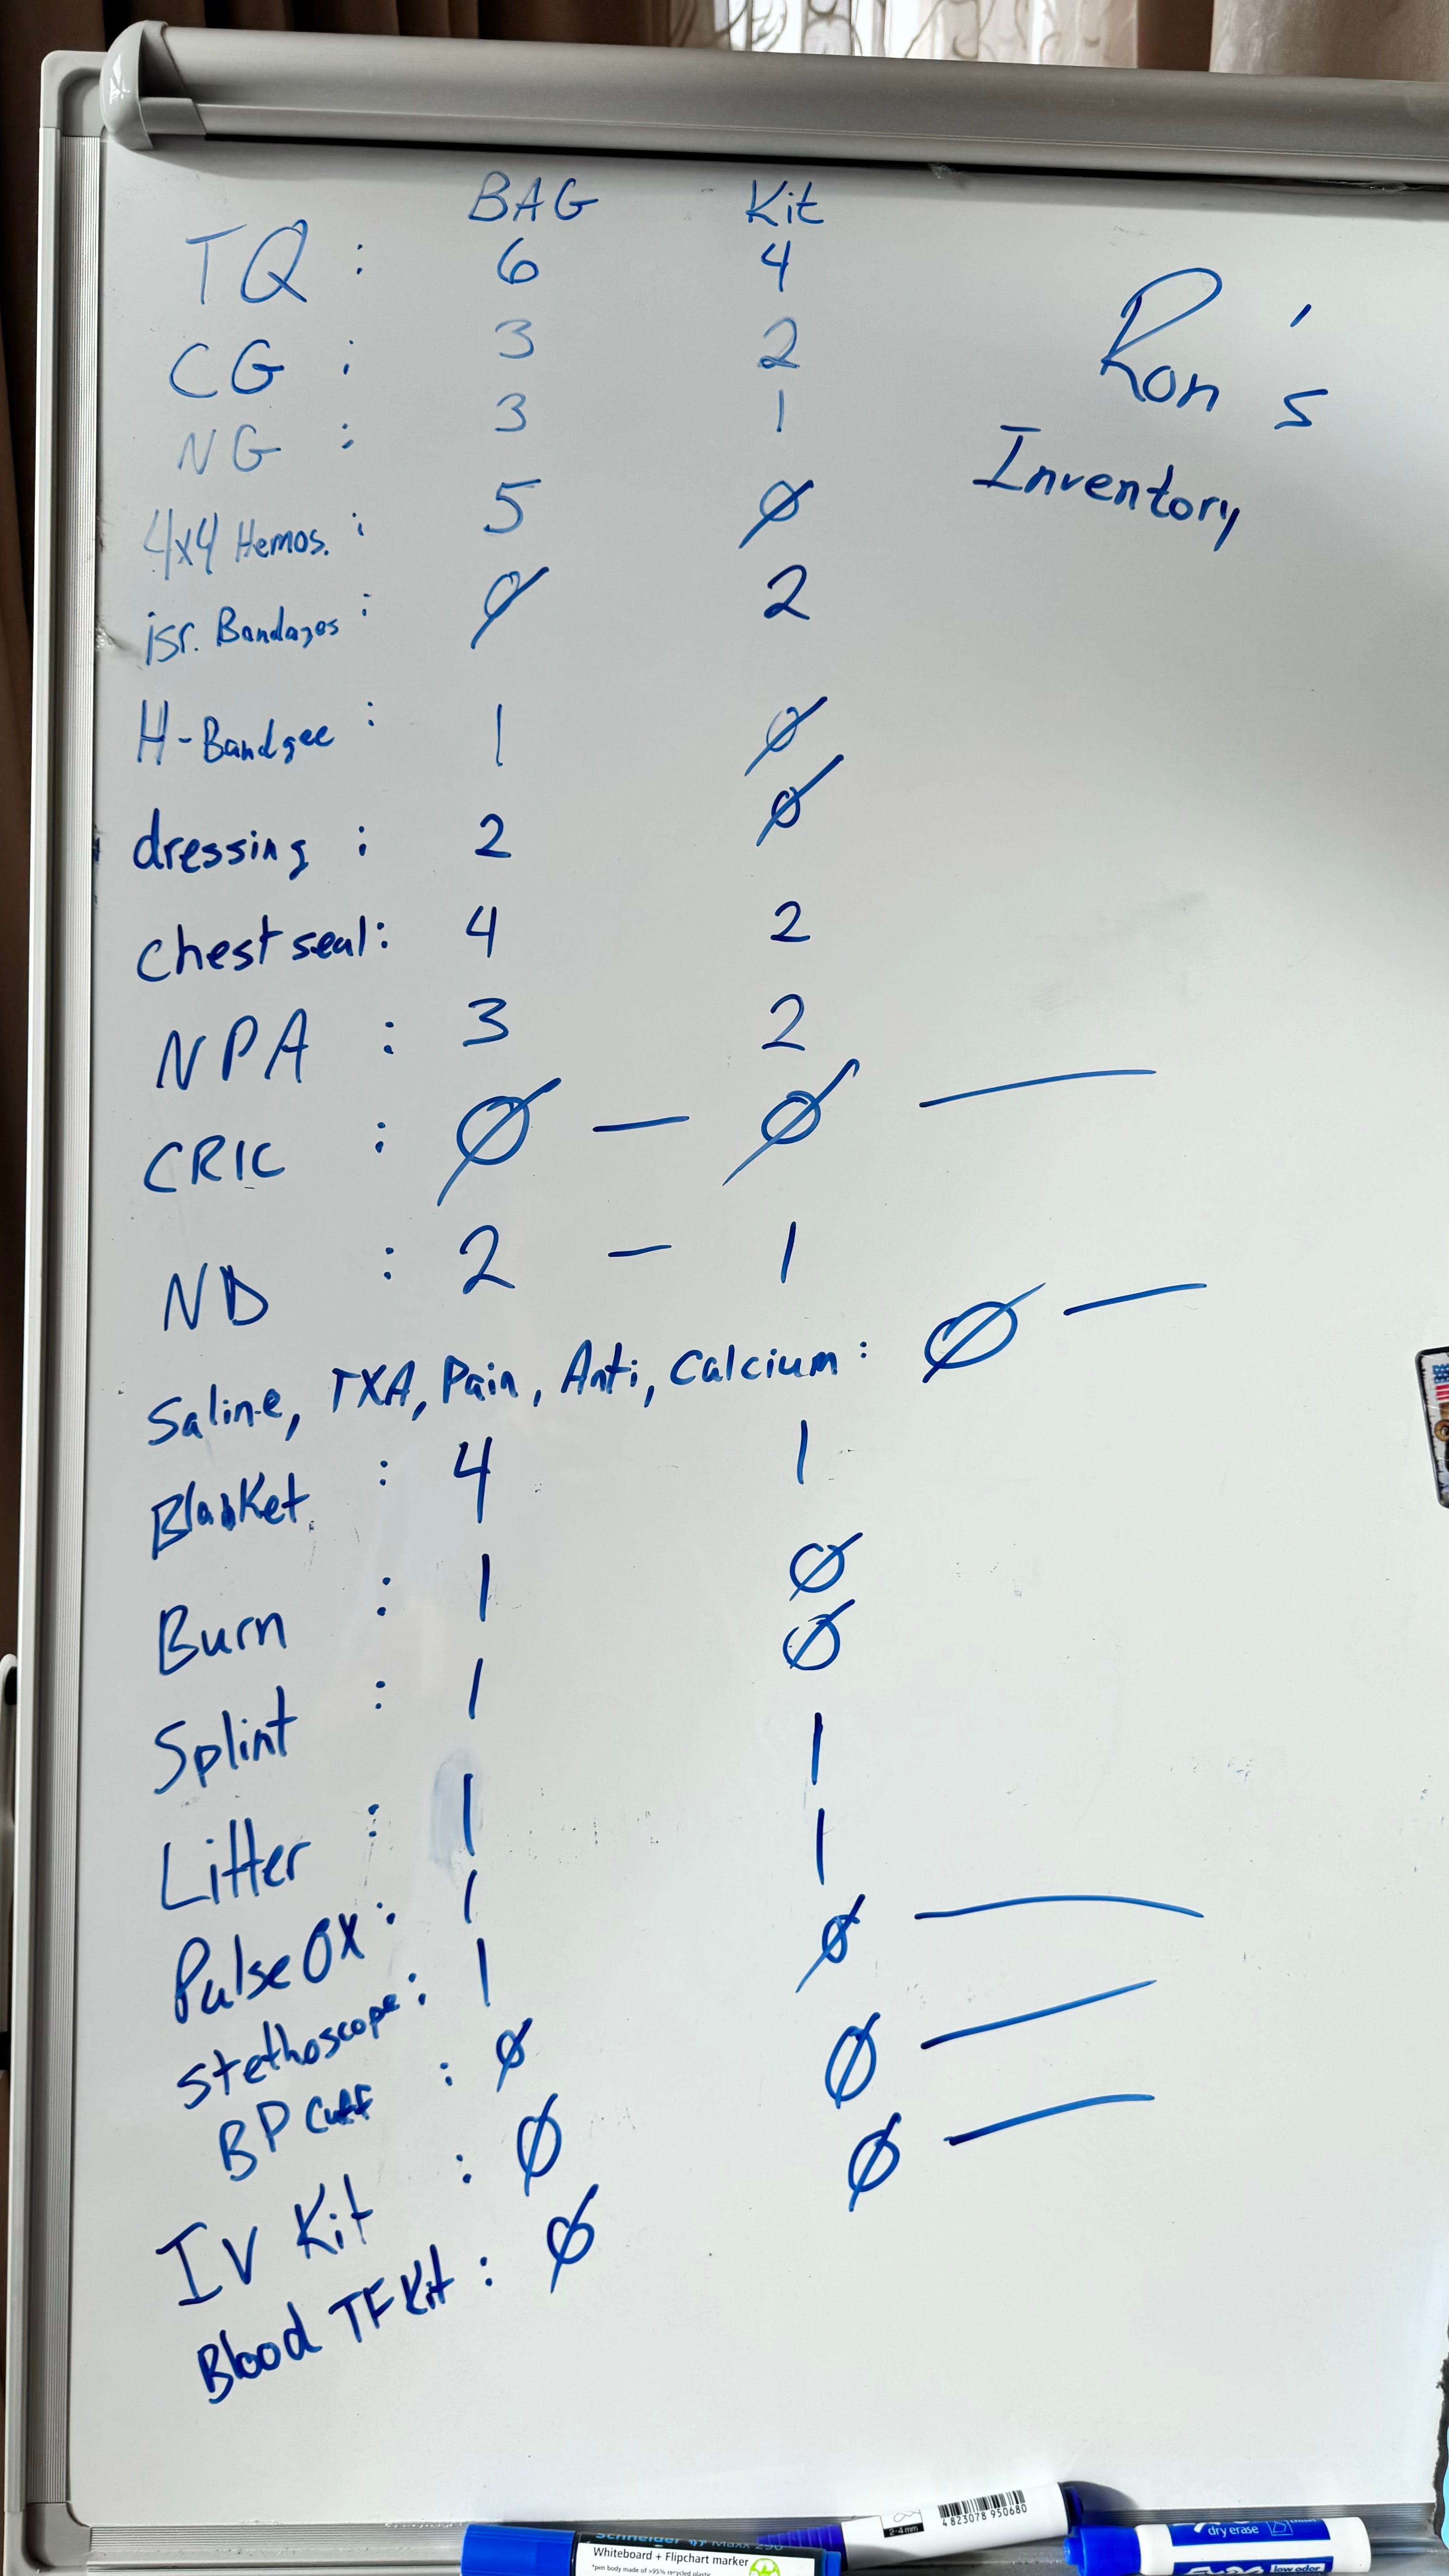 BAG Kit
TQ : 6 4
CG : 3 2
NG : 3 1
4x4 Hemos. : 5 Ø
isr. Bandages : Ø 2
H-Bandgee : 1 Ø
dressing : 2 Ø
Chest seal : 4 2
NPA : 3 2
CRIC : Ø — Ø —
ND : 2 — 1
Saline, TXA, Pain, Anti, Calcium : Ø —
Blanket : 4 1
Burn : 1 Ø
Splint : 1 Ø
Litter : 1 1
Pulse OX : 1 1
Stethoscope : 1 Ø —
BP Cuff : Ø Ø —
IV Kit : Ø Ø —
Blood TF Kit : Ø
Ron's
Inventory
4 823078 950680
2-4mm
Schneider Maxx 290
Whiteboard + Flipchart marker
*pen body made of >95% recycled plastic
dry erase
low odor